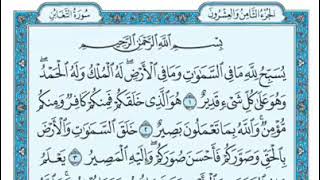 الجزء الثامن والعشرون سورة التغابن
بِسْمِ اللَّهِ الرَّحْمَٰنِ الرَّحِيمِ
يُسَبِّحُ لِلَّهِ مَا فِي السَّمَاوَاتِ وَمَا فِي الْأَرْضِ لَهُ الْمُلْكُ وَلَهُ الْحَمْدُ
وَهُوَ عَلَىٰ كُلِّ شَيْءٍ قَدِيرٌ ١ هُوَ الَّذِي خَلَقَكُمْ فَمِنكُمْ كَافِرٌ وَمِنكُم
مُّؤْمِنٌ وَاللَّهُ بِمَا تَعْمَلُونَ بَصِيرٌ ٢ خَلَقَ السَّمَاوَاتِ وَالْأَرْضَ
بِالْحَقِّ وَصَوَّرَكُمْ فَأَحْسَنَ صُوَرَكُمْ وَإِلَيْهِ الْمَصِيرُ ٣ يَعْلَمُ